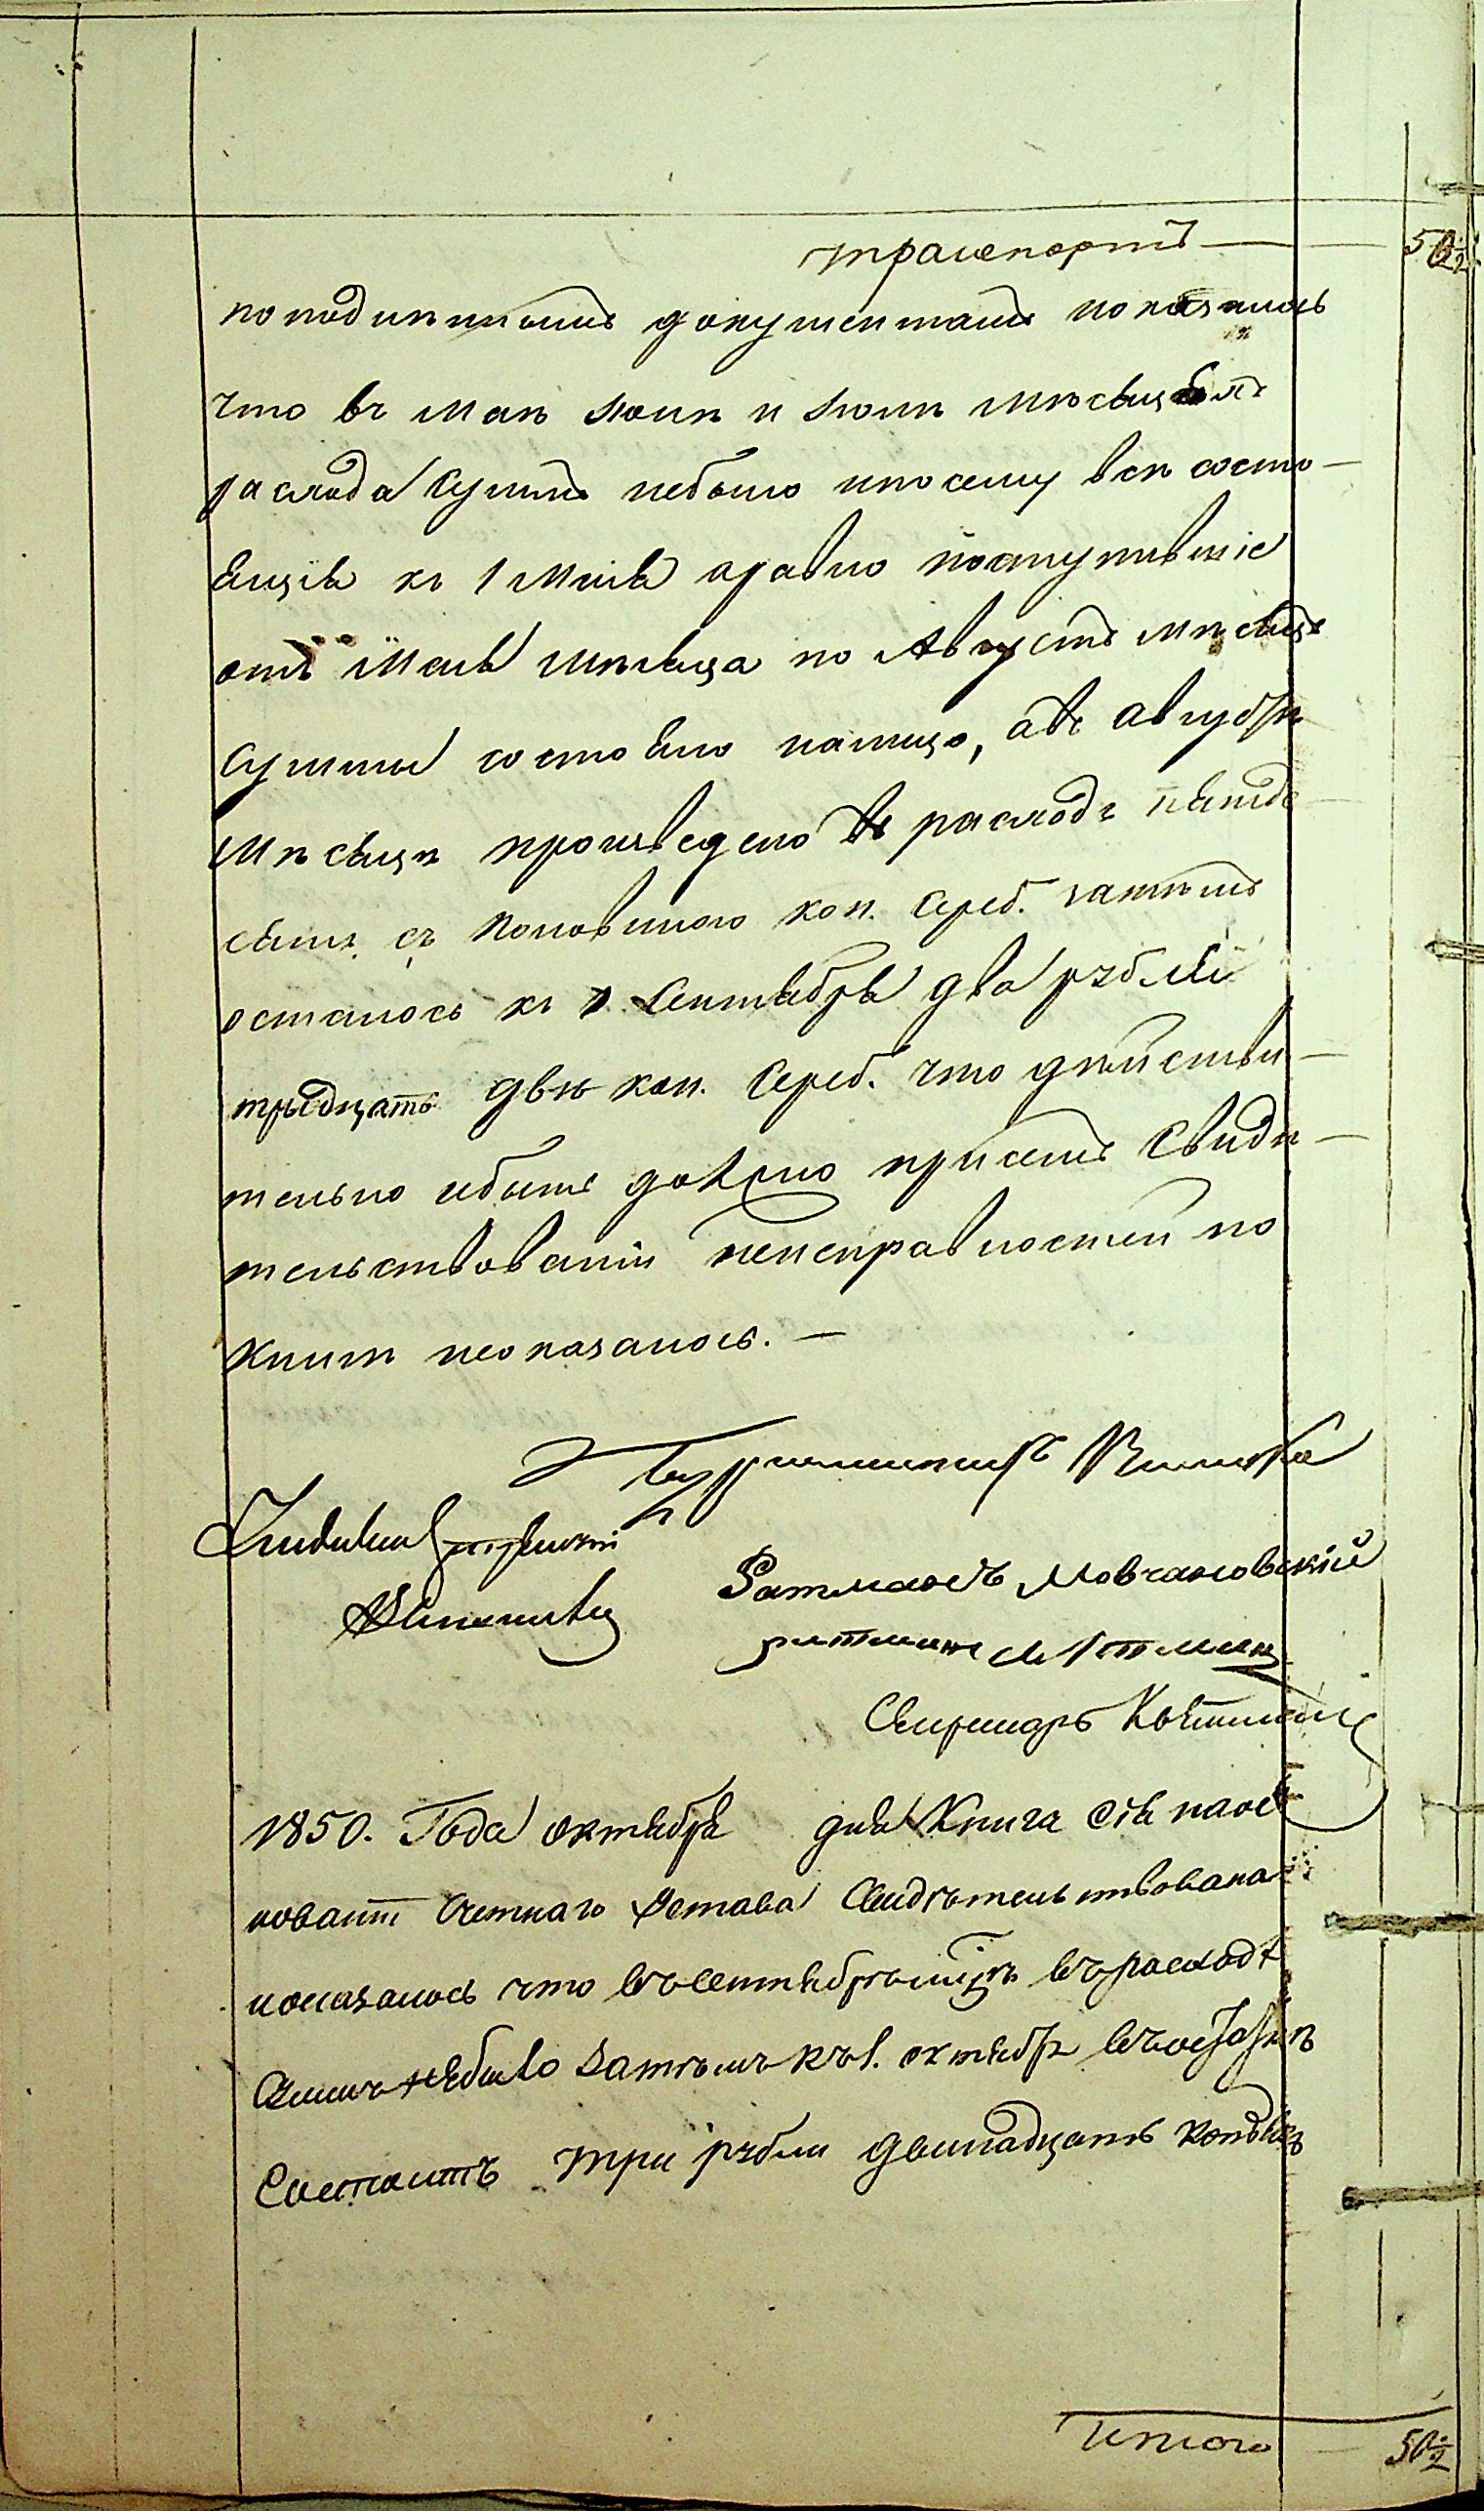 транспортъ — 50½
по подлиннымъ документамъ показалось
что въ Маѣ Іюнѣ и Іюлѣ мѣсяцахъ
расхода суммъ небыло ипосему всѣ состо-
ящія къ 1 Маія аравно поступившіе
отъ Маія мѣсяца по Августъ мѣсяцъ
суммы состояло налицо, авъ августѣ
мѣсяцѣ произведено въ расходъ пятьде-
сятъ съ половиною коп. сереб. затѣмъ
осталось къ 1 Сентября два рубля
тридцать двѣ коп. сереб. что дѣйстви-
тельно ибыть должно присемъ свидѣ-
тельствованіи неисправностей по
книгѣ неоказалось. —
Бургомистръ
Ратманъ Мовчановскій
ратманъ
Секретарь
1850. Года октября дня Книга сія наос-
нованіи Счетнаго Устава Свидѣтельствована
иоказалось что въсентябрѣ мцѣ въ расходѣ
Суммъ небыло затѣмъ къ 1. октября въостаткѣ
Состоитъ три рубли двѣнадцать копѣекъ
Итого — 50½